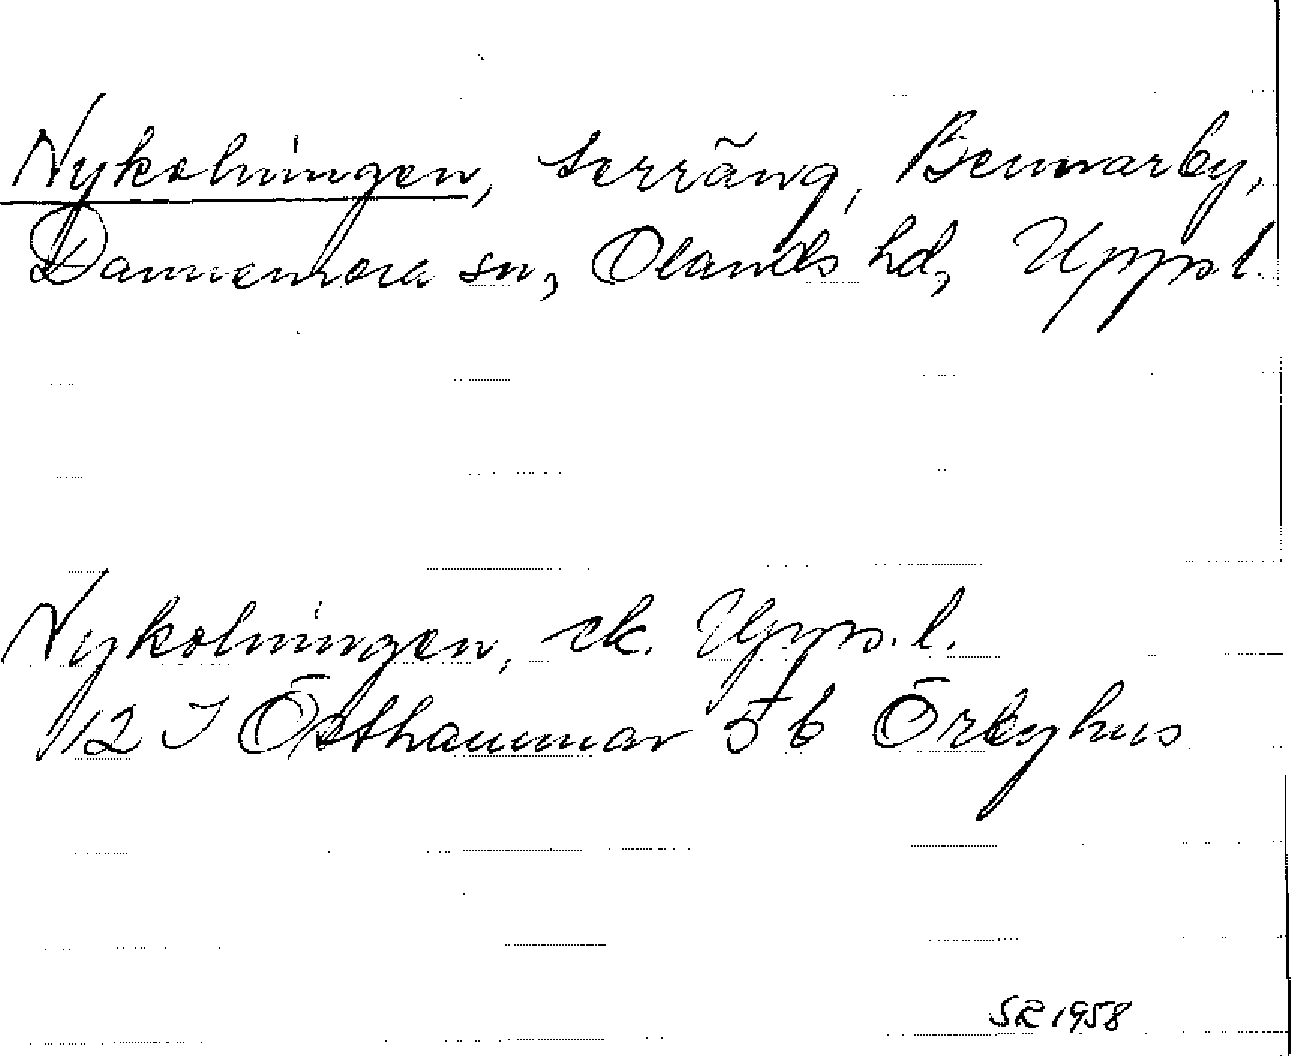 Nykolningen, terräng, Bennarby,
Dannemora sn, Olands hd, Uppl.
Nykolningen, ek. Uppl.
12 I Östhammar 5 b Örbyhus
SR 1958